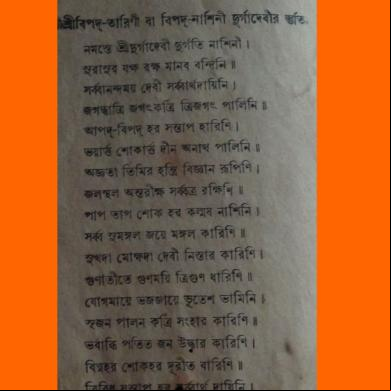 শ্রীবিপদ্-তারিণী বা বিপদ্-নাশিনী দুর্গাদেবীর স্তুতি
নমস্তে শ্রীদুর্গাদেবী দুর্গতি নাশিনী।
সুরাসুর যক্ষ রক্ষ মানব বন্দিনি॥
সর্ব্বানন্দময় দেবী সর্ব্বার্থদায়িনি।
জগদ্ধাত্রি জগৎকত্রি ত্রিজগৎ পালিনি॥
আপদ্-বিপদ্ হর সন্তাপ হারিণি।
ভয়ার্ত্ত শোকার্ত্ত দীন অনাথ পালিনি॥
অজ্ঞতা তিমির হন্ত্রি বিজ্ঞান রূপিণি।
জলস্থল অন্তরীক্ষ সর্ব্বত্র রক্ষিণি॥
পাপ তাপ শোক হর কল্মষ নাশিনি।
সর্ব্ব সুমঙ্গল জয়ে মঙ্গল কারিণি॥
সুখদা মোক্ষদা দেবী নিস্তার কারিণি।
গুণাতীতে গুণময়ি ত্রিগুণ ধারিণি॥
যোগমায়ে ভজজায়ে ভূতেশ ভামিনি।
সৃজন পালন কত্রি সংহার কারিণি॥
ভবাব্ধি পতিত জন উদ্ধার কারিণি।
বিঘ্নহর শোকহর দূরীত বারিণি॥
ত্রিবিধ সন্তাপ হর সর্ব্বার্থ দায়িনি।